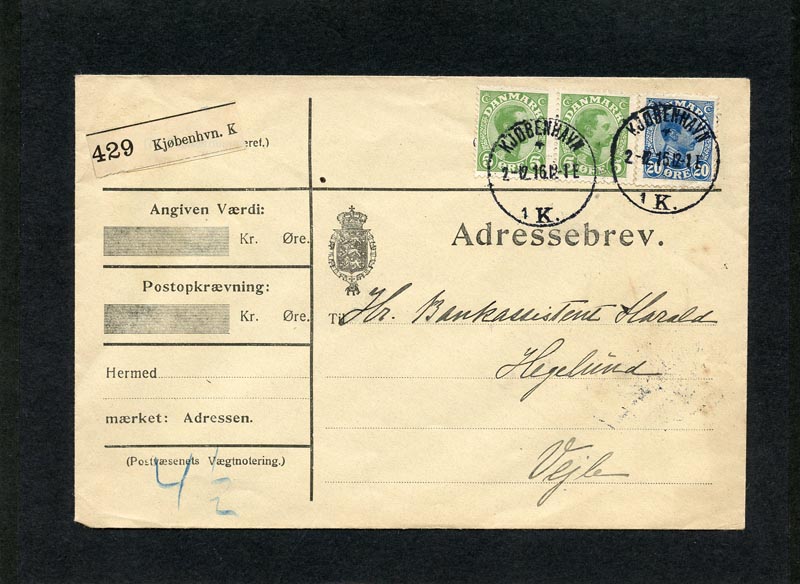 DANMARK DANMARK DANMARK
5 ØRE 5 5 ØRE 5 20 ØRE 20
KJØBENHAVN
2-12.16.12-1 E
1 K.
KJØBENHAVN
2-12.16.12-1 E
1 K.
429 Kjøbenhvn. K
eret.)
Angiven Værdi:
Kr. Øre.
Postopkrævning:
Kr. Øre.
Hermed
mærket: Adressen.
(Postvæsenets Vægtnotering.)
4½
Adressebrev.
Til Hr. Bankassistent Harald
Hegelund
Vejle